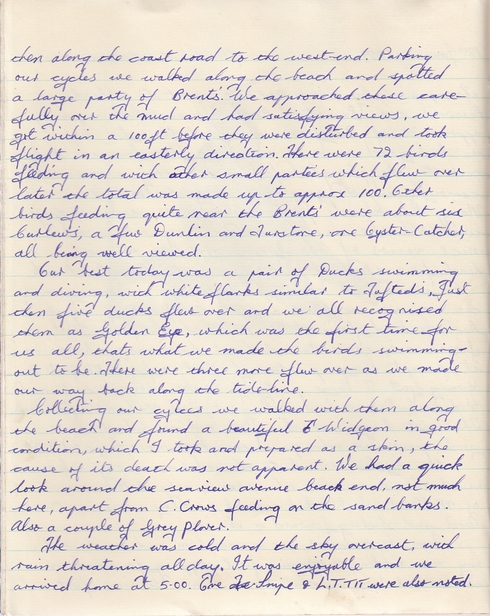 then along the coast road to the west-end. Parking
our cycles we walked along the beach and spotted
a large party of Brents'. We approached these care-
fully over the mud and had satisfying views, we
got within a 100ft before they were disturbed and took
flight in an easterly direction. There were 72 birds
feeding and with other small parties which flew over
later the total was made up to approx 100. Other
birds feeding quite near the Brents' were about six
Curlews, a few Dunlin and Turstone, one Oyster-Catcher,
all being well viewed.
Our best today was a pair of Ducks swimming
and diving, with white flanks similar to Tufted's, Just
then five ducks flew over and we all recognised
them as Golden Eye, which was the first time for
us all, thats what we made the birds swimming-
out to be. There were three more flew over as we made
our way back along the tide-line.
Collecting our cycles we walked with them along
the beach and found a beautiful Widgeon in good
condition, which I took and prepared as a skin, the
cause of its death was not apparent. We had a quick
look around the seaview avenue beach end, not much
here, apart from C. Crows feeding on the sand banks.
Also a couple of Grey Plover.
The weather was cold and the sky overcast, with
rain threatening all day. It was enjoyable and we
arrived home at 5-00. One Snipe & L.T. TIT were also noted.